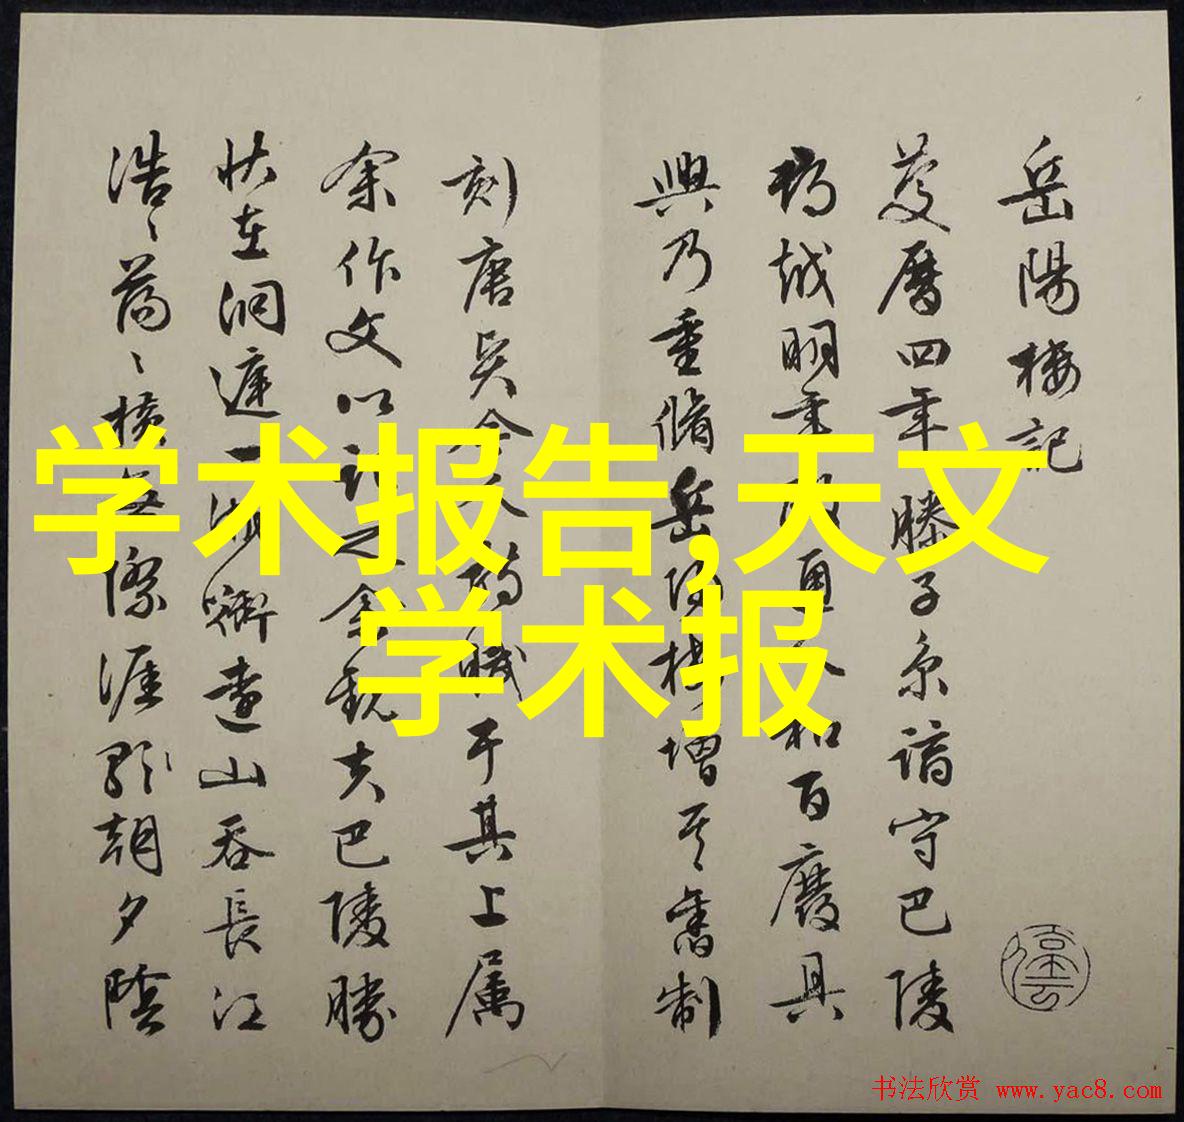 岳陽樓記
慶曆四年 滕子京謫守巴陵
郡越明年 通人和百廢具
興乃重脩岳陽樓增其舊制
刻唐 賢今人詩賦于其上属
余作文以記之余觀夫巴陵勝
状在洞庭一湖銜遠山吞長江
浩〻蕩〻橫無際涯 朝夕陰
学术报告,天文
学术报
书法欣赏 www.yac8.com